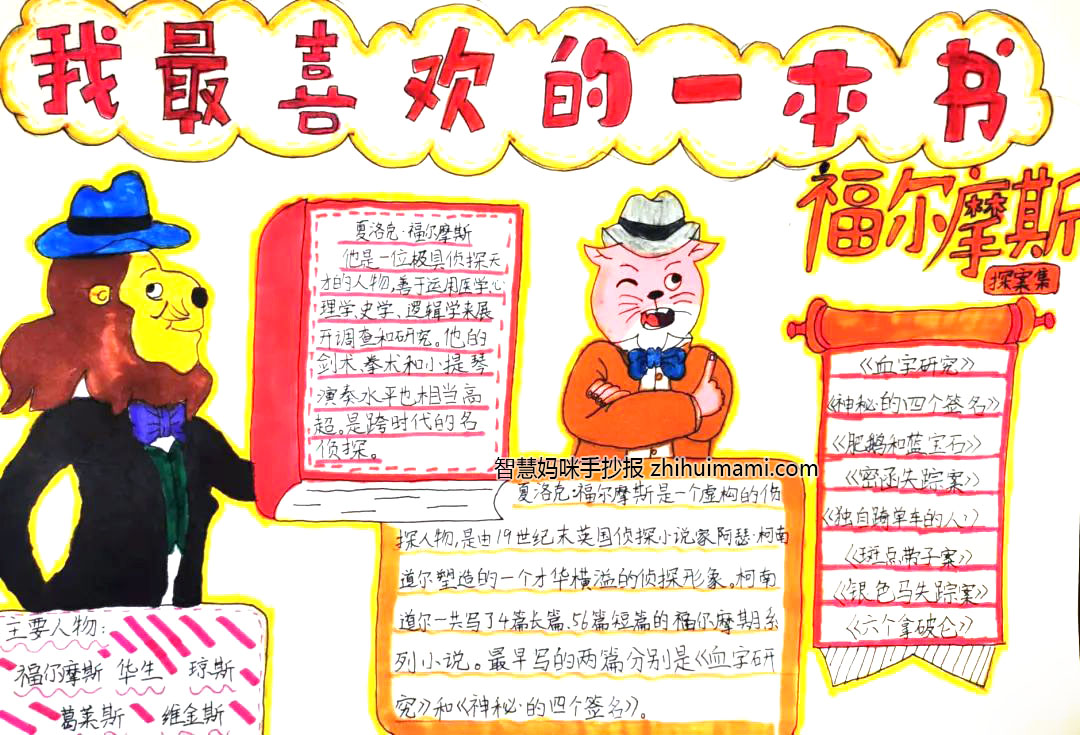 我最喜欢的一本书
福尔摩斯
探案集
夏洛克·福尔摩斯
他是一位极具侦探天
才的人物,善于运用医学、心
理学、史学、逻辑学来展
开调查和研究。他的
剑术、拳术和小提琴
演奏水平也相当高
超。是跨时代的名
侦探。
《血字研究》
《神秘的四个签名》
《肥鹅和蓝宝石》
《密函失踪案》
《独自骑单车的人》
《斑点带子案》
《银色马失踪案》
《六个拿破仑》
智慧妈咪手抄报 zhihuimami.com
夏洛克·福尔摩斯是一个虚构的侦
探人物,是由19世纪末英国侦探小说家阿瑟·柯南
道尔塑造的一个才华横溢的侦探形象。柯南
道尔一共写了4篇长篇、56篇短篇的福尔摩斯系
列小说。最早写的两篇分别是《血字研
究》和《神秘的四个签名》。
主要人物:
福尔摩斯 华生 琼斯
葛莱斯 维金斯